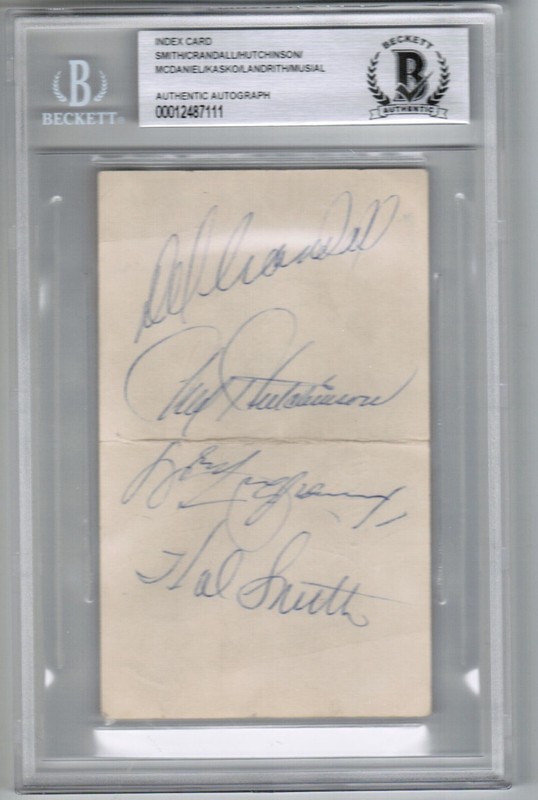 INDEX CARD
SMITH/CRANDALL/HUTCHINSON/
MCDANIEL/KASKO/LANDRITH/MUSIAL
AUTHENTIC AUTOGRAPH
00012487111
B
BECKETT®
BECKETT
B
AUTHENTIC
Del Crandall
Fred Hutchinson
Hal Smith